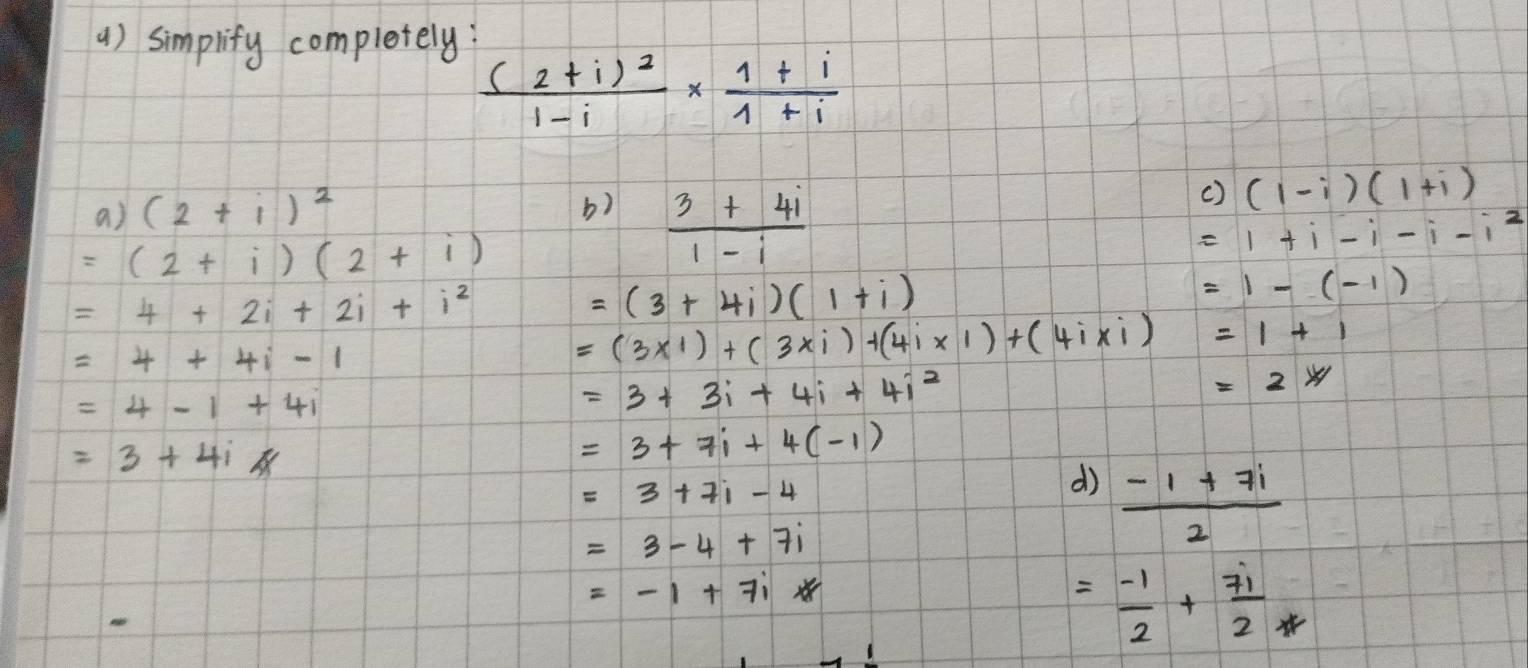 d) Simplify completely:
(2+i)² / 1-i × 1+i / 1+i
a) (2+i)²
= (2+i)(2+i)
= 4 + 2i + 2i + i²
= 4 + 4i - 1
= 4 - 1 + 4i
= 3 + 4i
b) 3 + 4i / 1 - i
= (3 + 4i)(1+i)
= (3×1) + (3×i) + (4i×1) + (4i×i)
= 3 + 3i + 4i + 4i²
= 3 + 7i + 4(-1)
= 3 + 7i - 4
= 3 - 4 + 7i
= -1 + 7i
c) (1-i)(1+i)
= 1 + i - i - i - i²
= 1 - (-1)
= 1 + 1
= 2
d) -1 + 7i / 2
= -1/2 + 7i/2